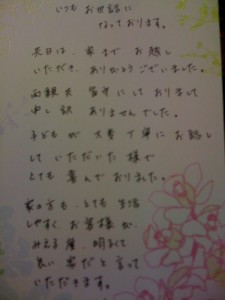 いつも お世話に
なっております。
先日は、家まで お越し
いただき、ありがとうございました。
両親共 留守にしておりまして
申し訳 ありませんでした。
子どもが 大変丁寧に お話し
していただいた 様で
とても 喜んでおりました。
家の方も、とても 生活
しやすく、お客様が
みえる度、明るくて
良い 家だと 言って
いただきます。